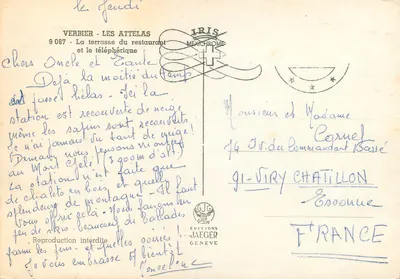 le Jeudi
VERBIER - LES ATTELAS
9 087 - La terrasse du restaurant
et le téléphérique
IRIS
MEXICHROME
Chers Oncle et Tante
Déjà la moitié du camp
est passé hélas. Ici la
station est recouverte de neige
même les sapins sont recouverts
Je n'ai jamais vu tant de neige!
Demain nous pensons monter
au Mont Gelé! (3000m d'alt)
La station n'est faite que
de chalets en bois et quelle
splendeur de montagne. Il faut
vous offrir cela. Nous faisons un
peu de skis beaucoup de ballades
parmi les et quelles soirées!
Je vous embrasse et bientôt
Reproduction interdite
EDITIONS
JAEGER
GENÈVE
Monsieur et Madame
Cornet
74 Av. du Commandant Bassé
91-VIRY CHATILLON
Essonne
FRANCE